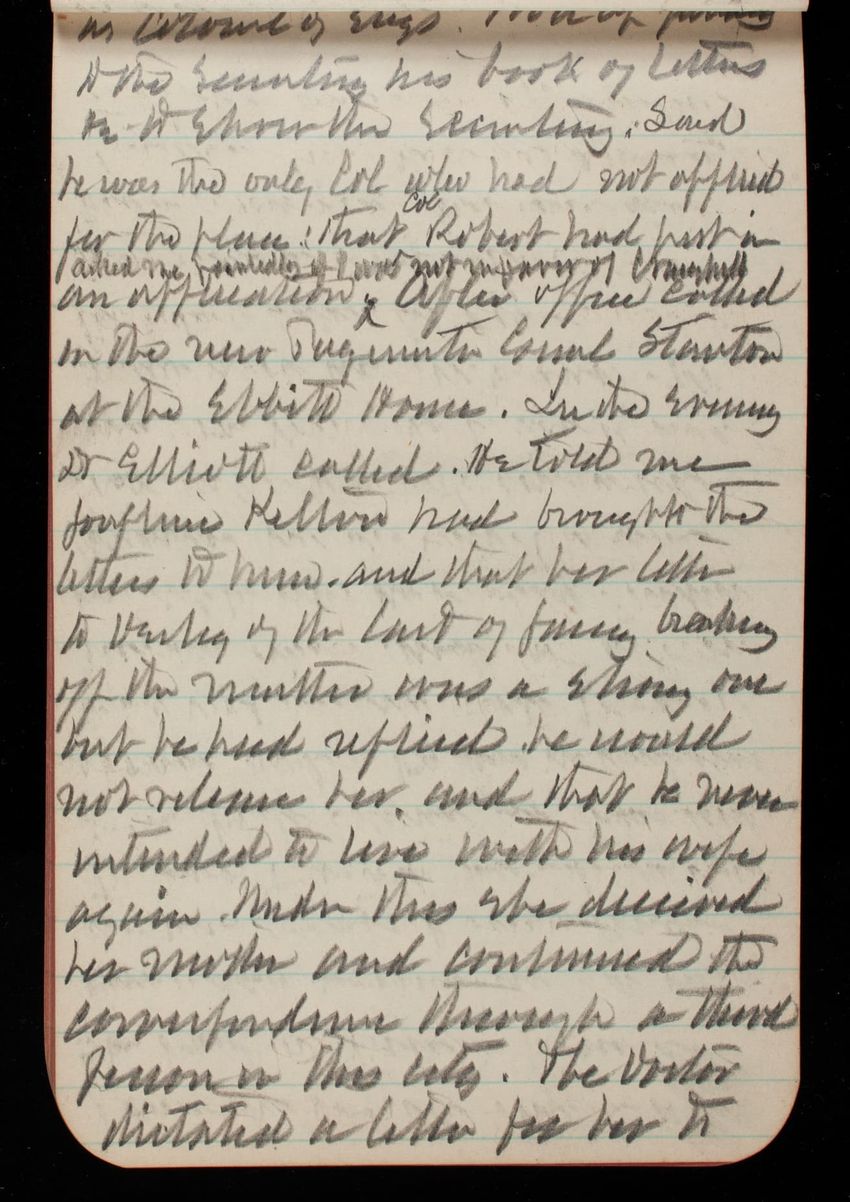 as Colonel of Engs.
to the Secretary his book of letters
to show the Secretary. Said
he was the only Col who had not applied
for the place: that Col Robert had put in
asked me pointedly if I was not in favor of Craighill
an application. After office called
on the new Consul Stanton
at the Ebbitt House. In the evening
Dr Elliott called. He told me
Josephine Kelton had brought the
letters to him. and that her letter
to of the last of Jany breaking
off the matter was a strong one
but he had replied he would
not release her. and that he never
intended to live with his wife
again. Under this she deceived
her mother and continued the
correspondence through a third
person in this city. The Doctor
dictated a letter for her to